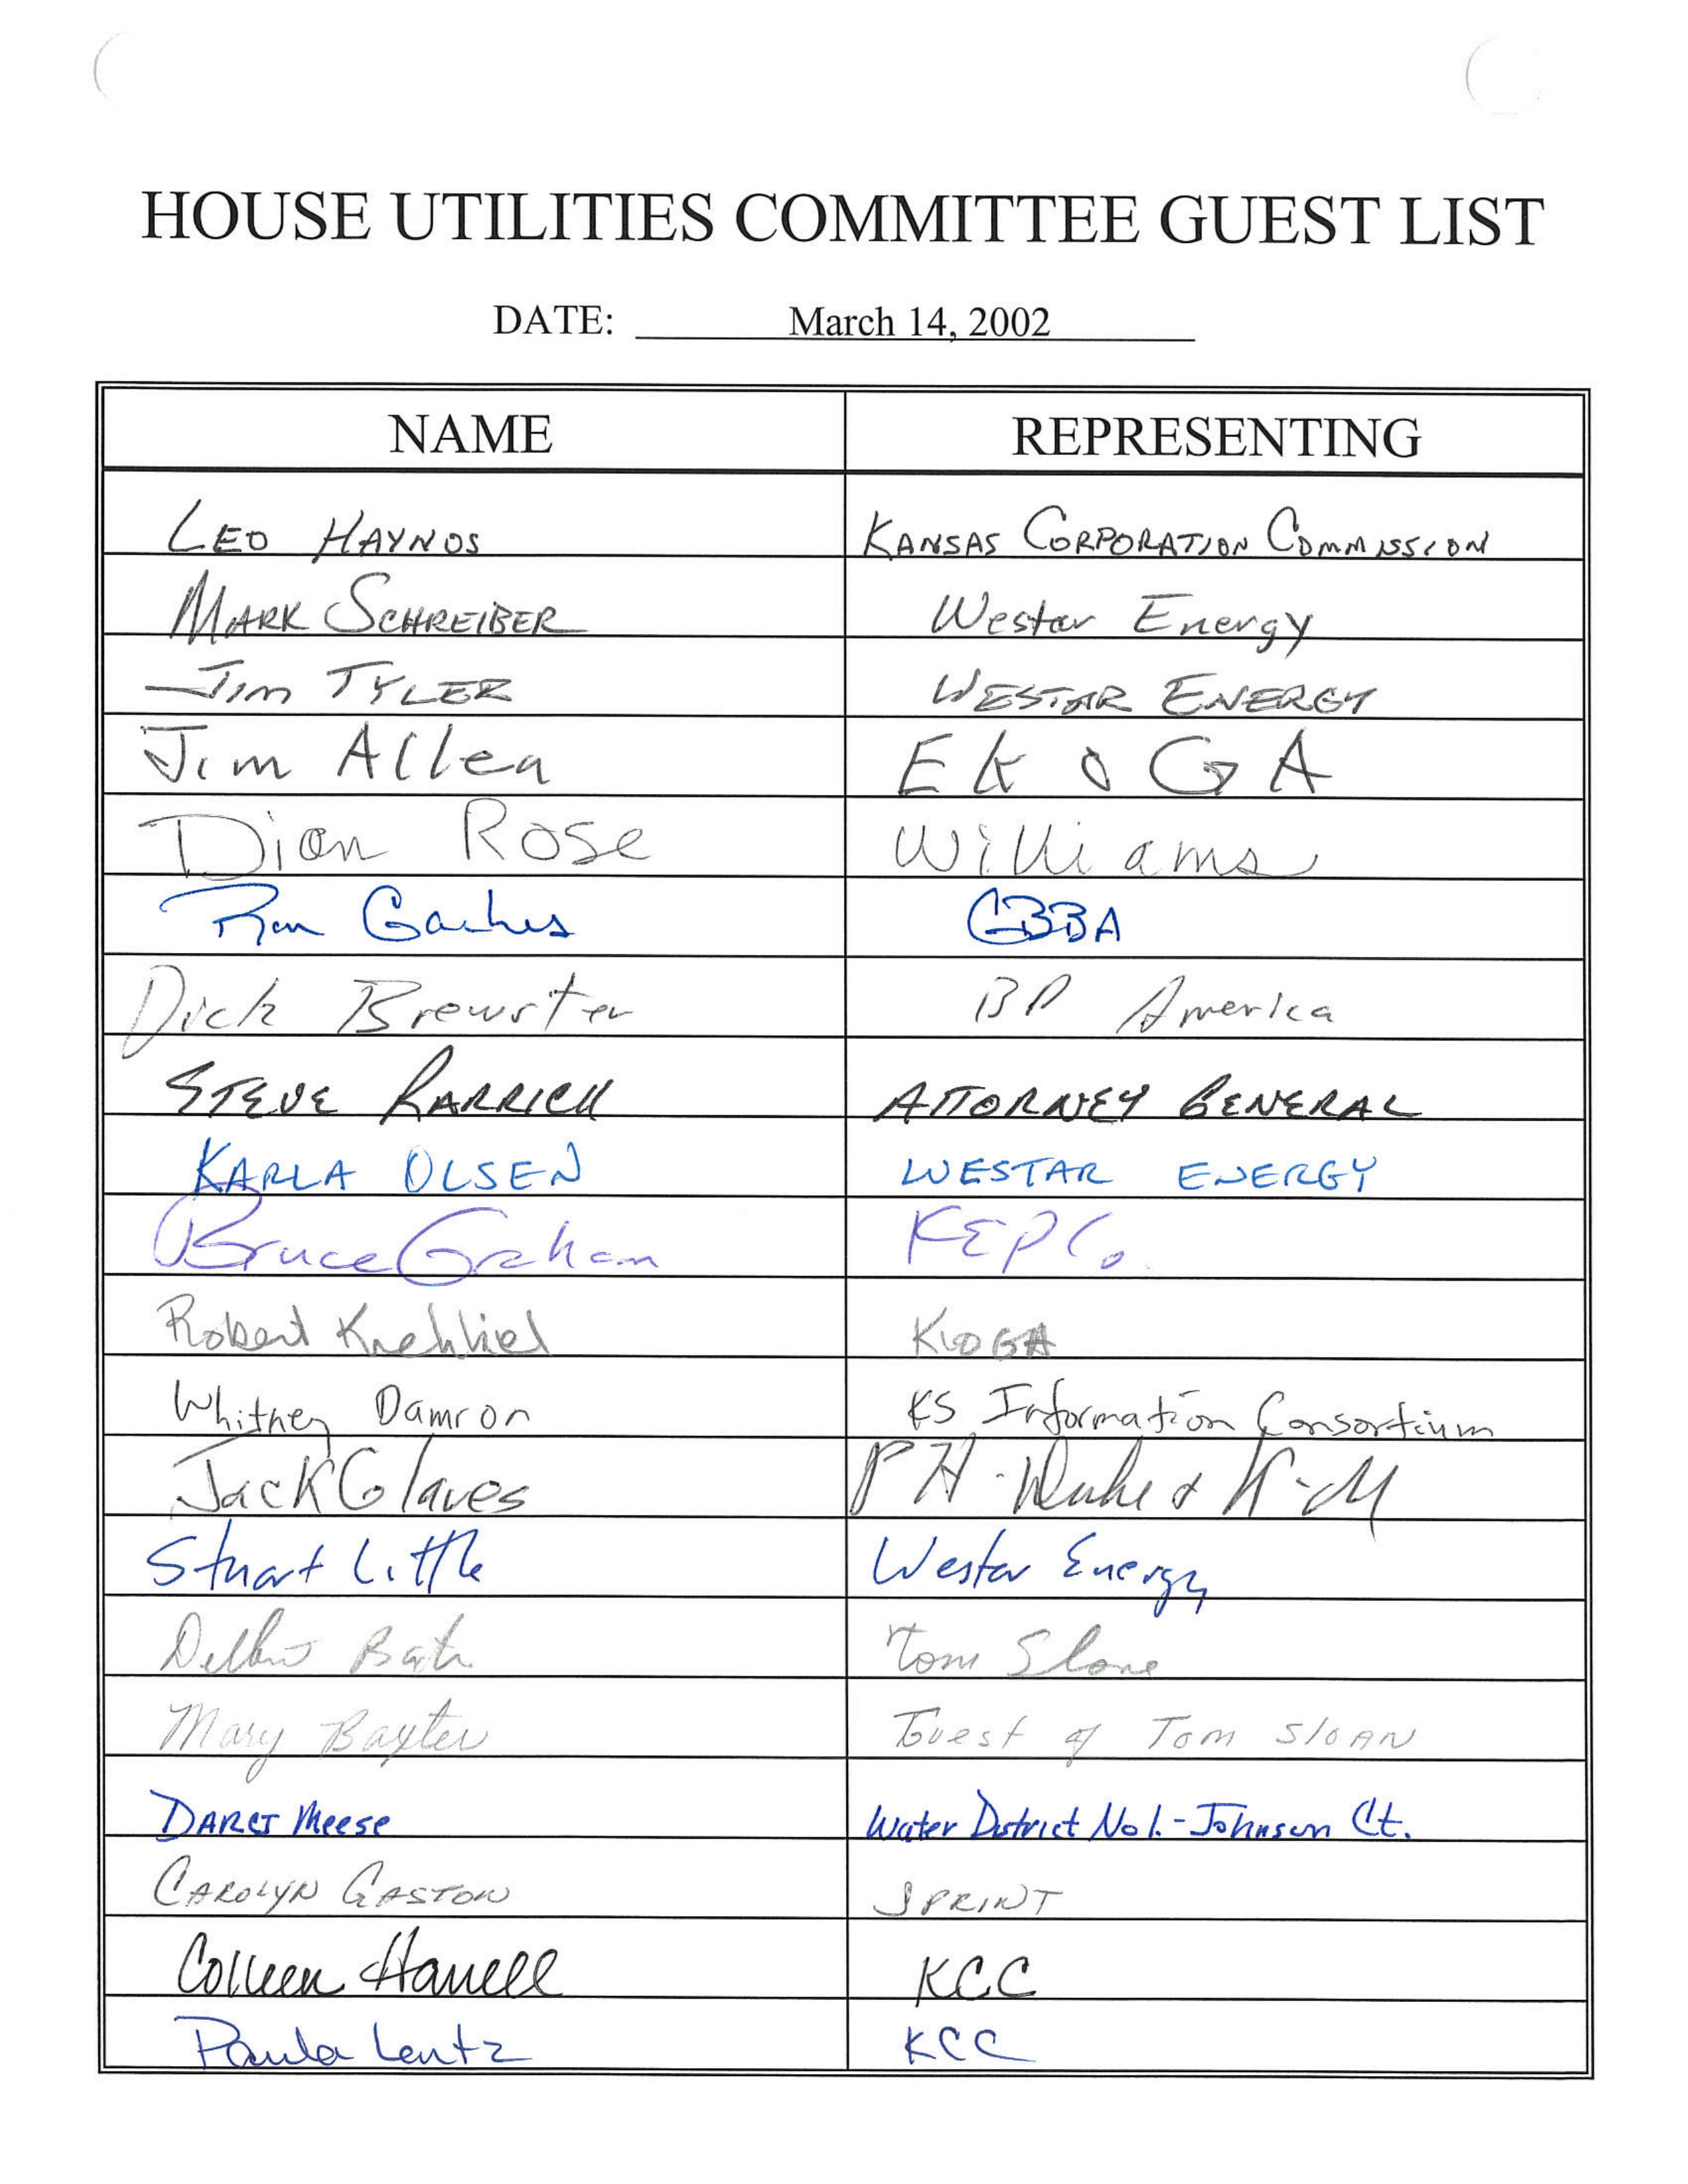 HOUSE UTILITIES COMMITTEE GUEST LIST
DATE: March 14, 2002
NAME REPRESENTING
LEO HAYNOS KANSAS CORPORATION COMMISSION
MARK SCHREIBER Westar Energy
JIM TYLER WESTAR ENERGY
Jim Allen EKOGA
Dion Rose Williams
Ron Gaches GBBA
Dick Brewster BP America
STEVE RARRICK ATTORNEY GENERAL
KARLA OLSEN WESTAR ENERGY
Bruce Graham KEPCo
Robert Krehbiel KIOGA
Whitney Damron KS Information Consortium
Jack Glaves P H - Duke & K-M
Stuart Little Westar Energy
Tom Sloan
Mary Baxter Guest of Tom SloAN
DARCI Meese Water District No 1. - Johnson Ct.
CAROLYN GASTON SPRINT
Colleen Harrell KCC
Paula Lentz KCC